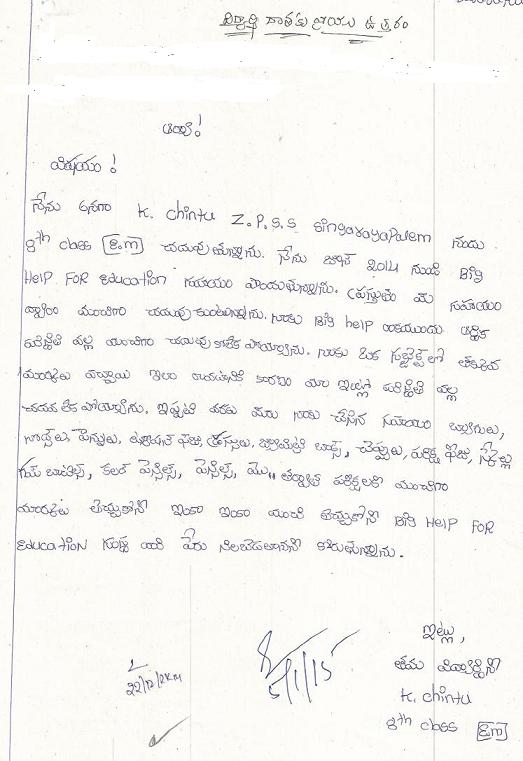 విద్యార్థి రాయు ఉత్తరం
ఆర్యా!
విషయం!
నేను అనగా K. chintu Z.P.S.S Singarayapalem నందు
8th class [E.m] చదువుతున్నాను. నేను జూన్ 2014 నుండి BIG
HelP FOR education సహాయం పొందుతున్నాను. ప్రస్తుతం మీ సహాయం
ద్వారా మంచిగా చదువుకుంటున్నాను. నాకు BIG help రాకముందు ఆర్థిక
పరిస్థితి వల్ల మంచిగా చదువుకోలేక పోయాను. నాకు ఒక సబ్జెక్ట్ లో తక్కువ
మార్కులు వచ్చాయి ఇలా రావడానికి కారణం మా ఇంట్లో పరిస్థితి వల్ల
చదవలేక పోయాను. ఇప్పటి వరకు మీరు నాకు చేసిన సహాయం బ్యాగులు,
నోట్సులు, పెన్నులు, ట్యూషన్ ఫీజు, డ్రస్సులు, జామెట్రి బాక్స్, చెప్పులు, పరీక్ష ఫీజు, స్కేల్లు
గమ్ బాటిల్స్, కలర్ పెన్సిల్స్, పెన్సిల్స్, మొ,, తర్వాత పరీక్షలకి మంచిగా
మార్కులు తెచ్చుకొని ఇంకా ఇంకా మంచి తెచ్చుకొని BIG HelP FOR
education సంస్థ యొక్క పేరు నిలబెడతానని కోరుతున్నాను.
ఇట్లు,
తమ విద్యార్థిని
K. chintu
8th class [E.m]
5/1/15